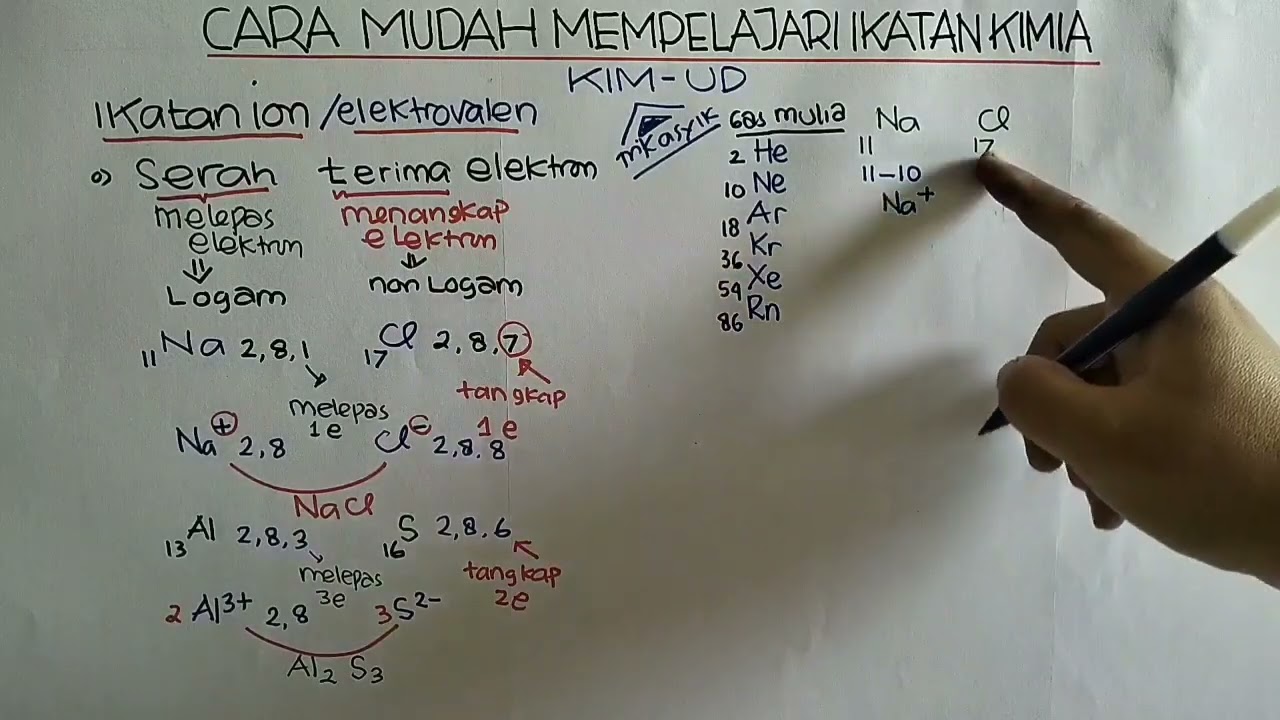 CARA MUDAH MEMPELAJARI IKATAN KIMIA
KIM-UD
Ikatan ion / elektrovalen
Serah terima elektron
melepas elektron
menangkap elektron
Logam
non Logam
11Na 2,8,1
17Cl 2,8,7
melepas 1e
tangkap 1e
Na+ 2,8
Cl- 2,8,8
NaCl
13Al 2,8,3
16S 2,8,6
melepas 3e
tangkap 2e
2 Al3+ 2,8
3S2-
Al2 S3
mkasyik
Gas mulia
2 He
10 Ne
18 Ar
36 Kr
54 Xe
86 Rn
Na
11
11-10
Na+
Cl
17